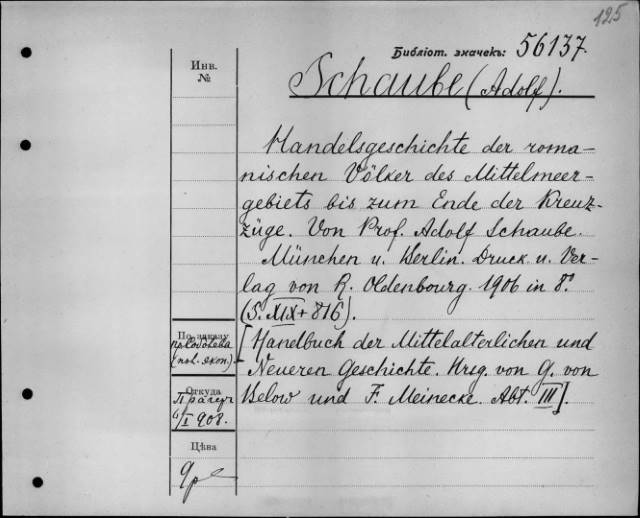 125
Библіот. значекъ: 56137.
Инв.
№
Schaube (Adolf).
Handelsgeschichte der roma-
nischen Völker des Mittelmeer-
gebiets bis zum Ende der Kreuz-
züge. Von Prof. Adolf Schaube.
München u. Berlin. Druck u. Ver-
lag von R. Oldenbourg. 1906 in 8°
(S. XIX + 816).
[Handbuch der Mittelalterlichen und
Neueren Geschichte. Hrsg. von G. von
Below und F. Meinecke. Abt. III].
По заказу
(пол. экон.)
Откуда
Прагеръ
6/I 908.
Цѣна
9р